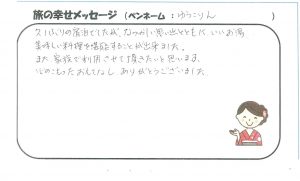 旅の幸せメッセージ (ペンネーム : ゆうこりん )
久しぶりの宿泊でしたが、なつかしい思い出とともに、いいお湯
美味しい料理を堪能することが出来ました。
また 家族で利用させて頂きたいと思います。
心のこもったおもてなし ありがとうございました